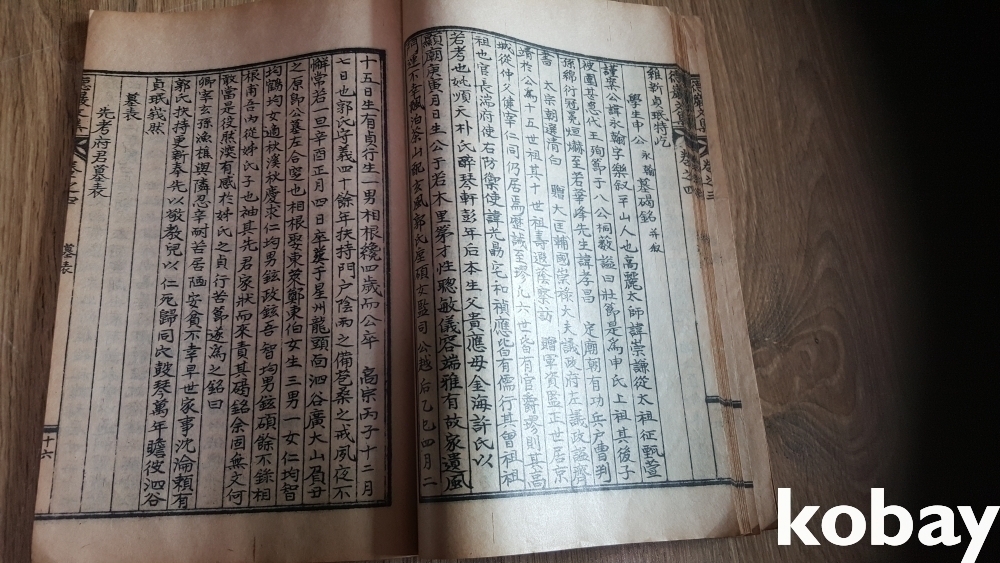 維新貞珉特屹
學生申公永翰墓碣銘 并叙
謹案公諱永翰字樂叙平山人也高麗太師諱崇謙從太祖征甄萱
被圍甚急代王殉節于八公桐藪謚曰壯節是爲申氏上祖其後子
孫綿衍冠冕烜爀至若華峰先生諱孝昌 定廟朝有功兵戶曹判
書 太宗朝選清白 贈大匡輔國崇祿大夫議政府左議政謚齊
靖於公爲十五世祖其十 世祖壽遐蔭察訪 贈軍資監正世居京
城從仲父健宰仁同仍居焉歷誠至璆凡六世皆有官爵璆則其高
祖也官長湍府使右防禦使諱光勗宅和禎應皆有儒行其曾祖祖
若考也妣順天朴氏醉琴軒彭年后本生父貴應母金海許氏以
顯朝庚寅月日生公于若木里第才性聰敏儀容端雅有故家遺風
運不幸飄泊茶山配玄風郭氏碩女監司公越后乙巳四月二
十五日生有貞行生一男相根纔四歲而公卒 高宗丙子十二月
七日也郭氏守義四十餘年扶持門户陰雨之備苞桑之戒夙夜不
懈常若一旦辛酉正月四日卒葬于星州龍頭面泗谷廣大山負丑
之原卽公墓左合窆也相根娶東萊鄭東伯女生三男一女仁均智
均鶴均女適秋漢秋慶求仁均男鉉政鉉吾智均男鉉碩餘不錄相
根甫吾內從姊氏子也袖其先君家狀而來責其碣銘余固無文何
敢當是役然深有感於姊氏之貞行苦節遂爲之銘曰
卿宰玄孫漁樵與隣忍辛耐苦居陋安貧不幸早世家事沈淪賴有
郭氏扶持更新奉先以敬教兒以仁死歸同穴鼓琴萬年瞻彼泗谷
貞珉峩然
墓表
先考府君墓表
墓表
十六
kobay